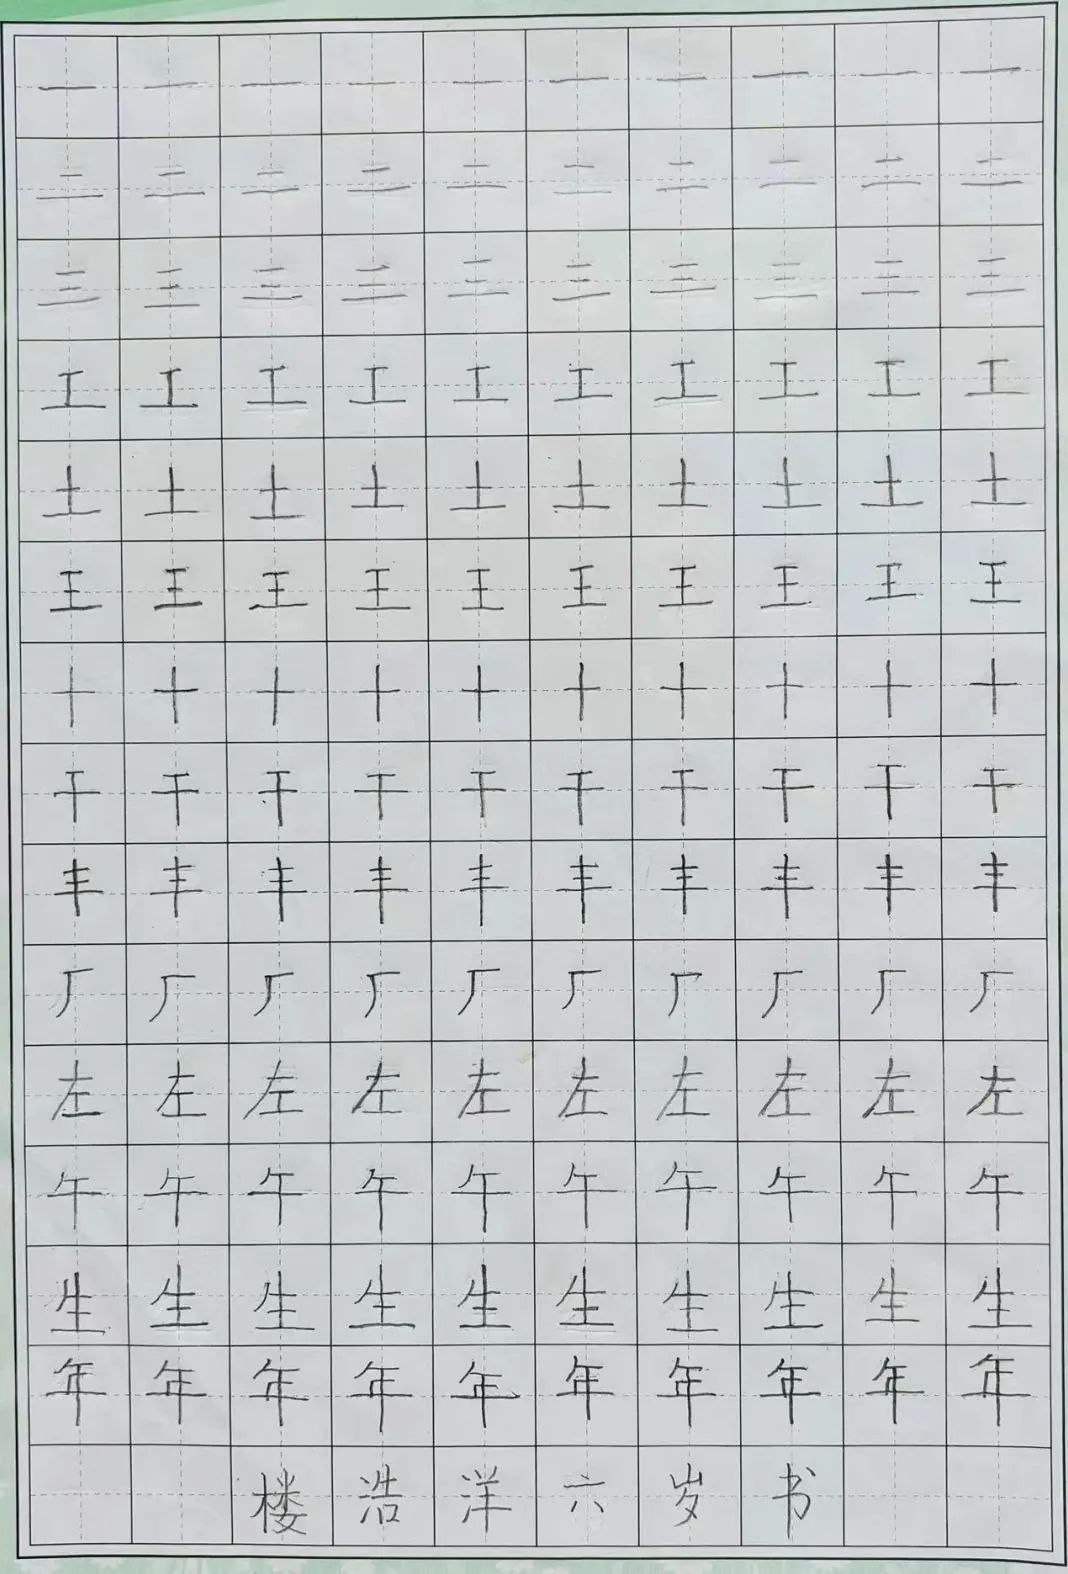 一一一一一一一一一一
二二二二二二二二二二
三三三三三三三三三三
工工工工工工工工工工
土土土土土土土土土土
王王王王王王王王王王
十十十十十十十十十十
干干干干干干干干干干
丰丰丰丰丰丰丰丰丰丰
厂厂厂厂厂厂厂厂厂厂
左左左左左左左左左左
午午午午午午午午午午
生生生生生生生生生生
年年年年年年年年年年
楼浩洋六岁书